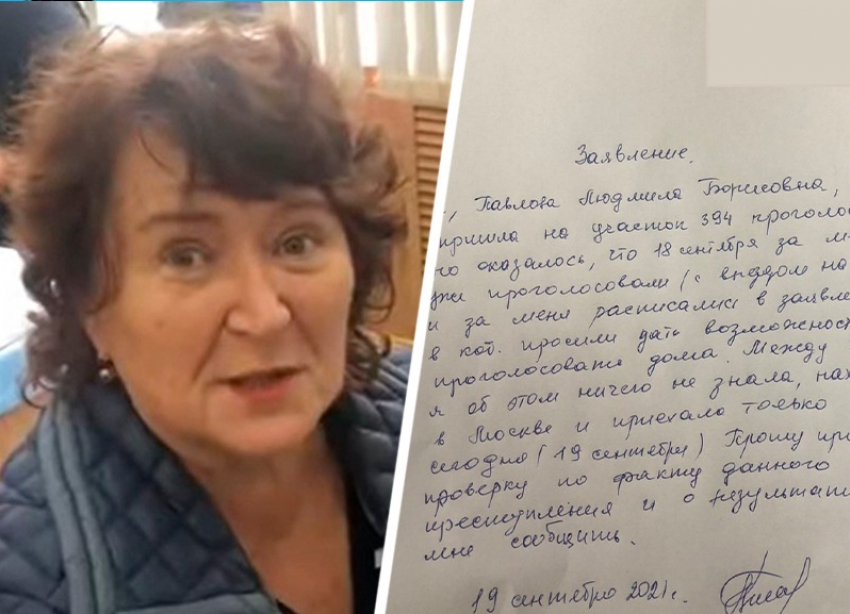 Заявление.
, Павлова Людмила Борисовна,
пришла на участок 394 проголос
го оказалось, что 18 сентября за м
уже проголосовали (с выездом на
и за меня расписались в заявле
в кот. просили дать возможност
проголосовать дома. Между
я об этом ничего не знала, нах
в Москве и приехала только
сегодня (19 сентября) Прошу про
проверку по факту данного
преступления и о результат
мне сообщить.
19 сентября 2021г.